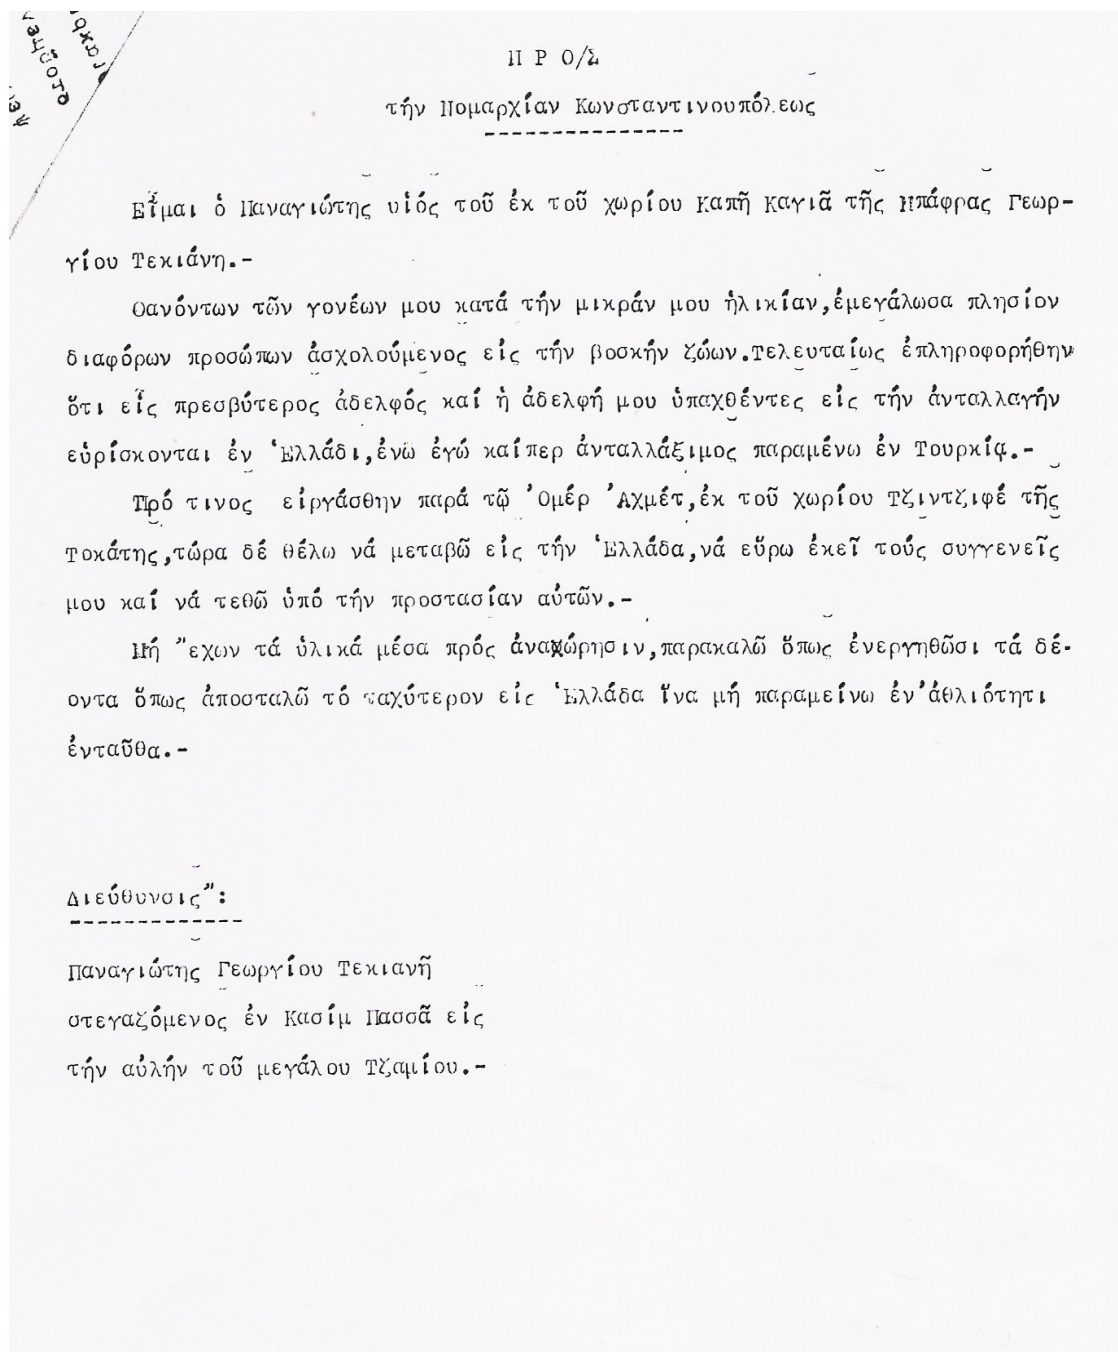 Π Ρ Ο/Σ
τήν Νομαρχίαν Κωνσταντινουπόλεως
Εἶμαι ὁ Παναγιώτης υἱός τοῦ ἐκ τοῦ χωρίου Καπῆ Καγιᾶ τῆς Μπάφρας Γεωρ-
γίου Τεκιάνη.-
Θανόντων τῶν γονέων μου κατά τήν μικράν μου ἡλικίαν,ἐμεγάλωσα πλησίον
διαφόρων προσώπων ἀσχολούμενος εἰς τήν βοσκήν ζώων.Τελευταίως ἐπληροφορήθην
ὅτι εἷς πρεσβύτερος ἀδελφός καί ἡ ἀδελφή μου ὑπαχθέντες εἰς τήν ἀνταλλαγήν
εὑρίσκονται ἐν Ἑλλάδι,ἐνῶ ἐγώ καίπερ ἀνταλλάξιμος παραμένω ἐν Τουρκίᾳ.-
Πρό τινος εἰργάσθην παρά τῷ Ὀμέρ Ἀχμέτ,ἐκ τοῦ χωρίου Τζιντζιφέ τῆς
Τοκάτης,τώρα δέ θέλω νά μεταβῶ εἰς τήν Ἑλλάδα,νά εὕρω ἐκεῖ τούς συγγενεῖς
μου καί νά τεθῶ ὑπό τήν προστασίαν αὐτῶν.-
Μή ἔχων τά ὑλικά μέσα πρός ἀναχώρησιν,παρακαλῶ ὅπως ἐνεργηθῶσι τά δέ-
οντα ὅπως ἀποσταλῶ τό ταχύτερον εἰς Ἑλλάδα ἵνα μή παραμείνω ἐν ἀθλιότητι
ἐνταῦθα.-
Διεύθυνσις":
Παναγιώτης Γεωργίου Τεκιανῆ
στεγαζόμενος ἐν Κασίμ Πασσᾶ εἰς
τήν αὐλήν τοῦ μεγάλου Τζαμίου.-